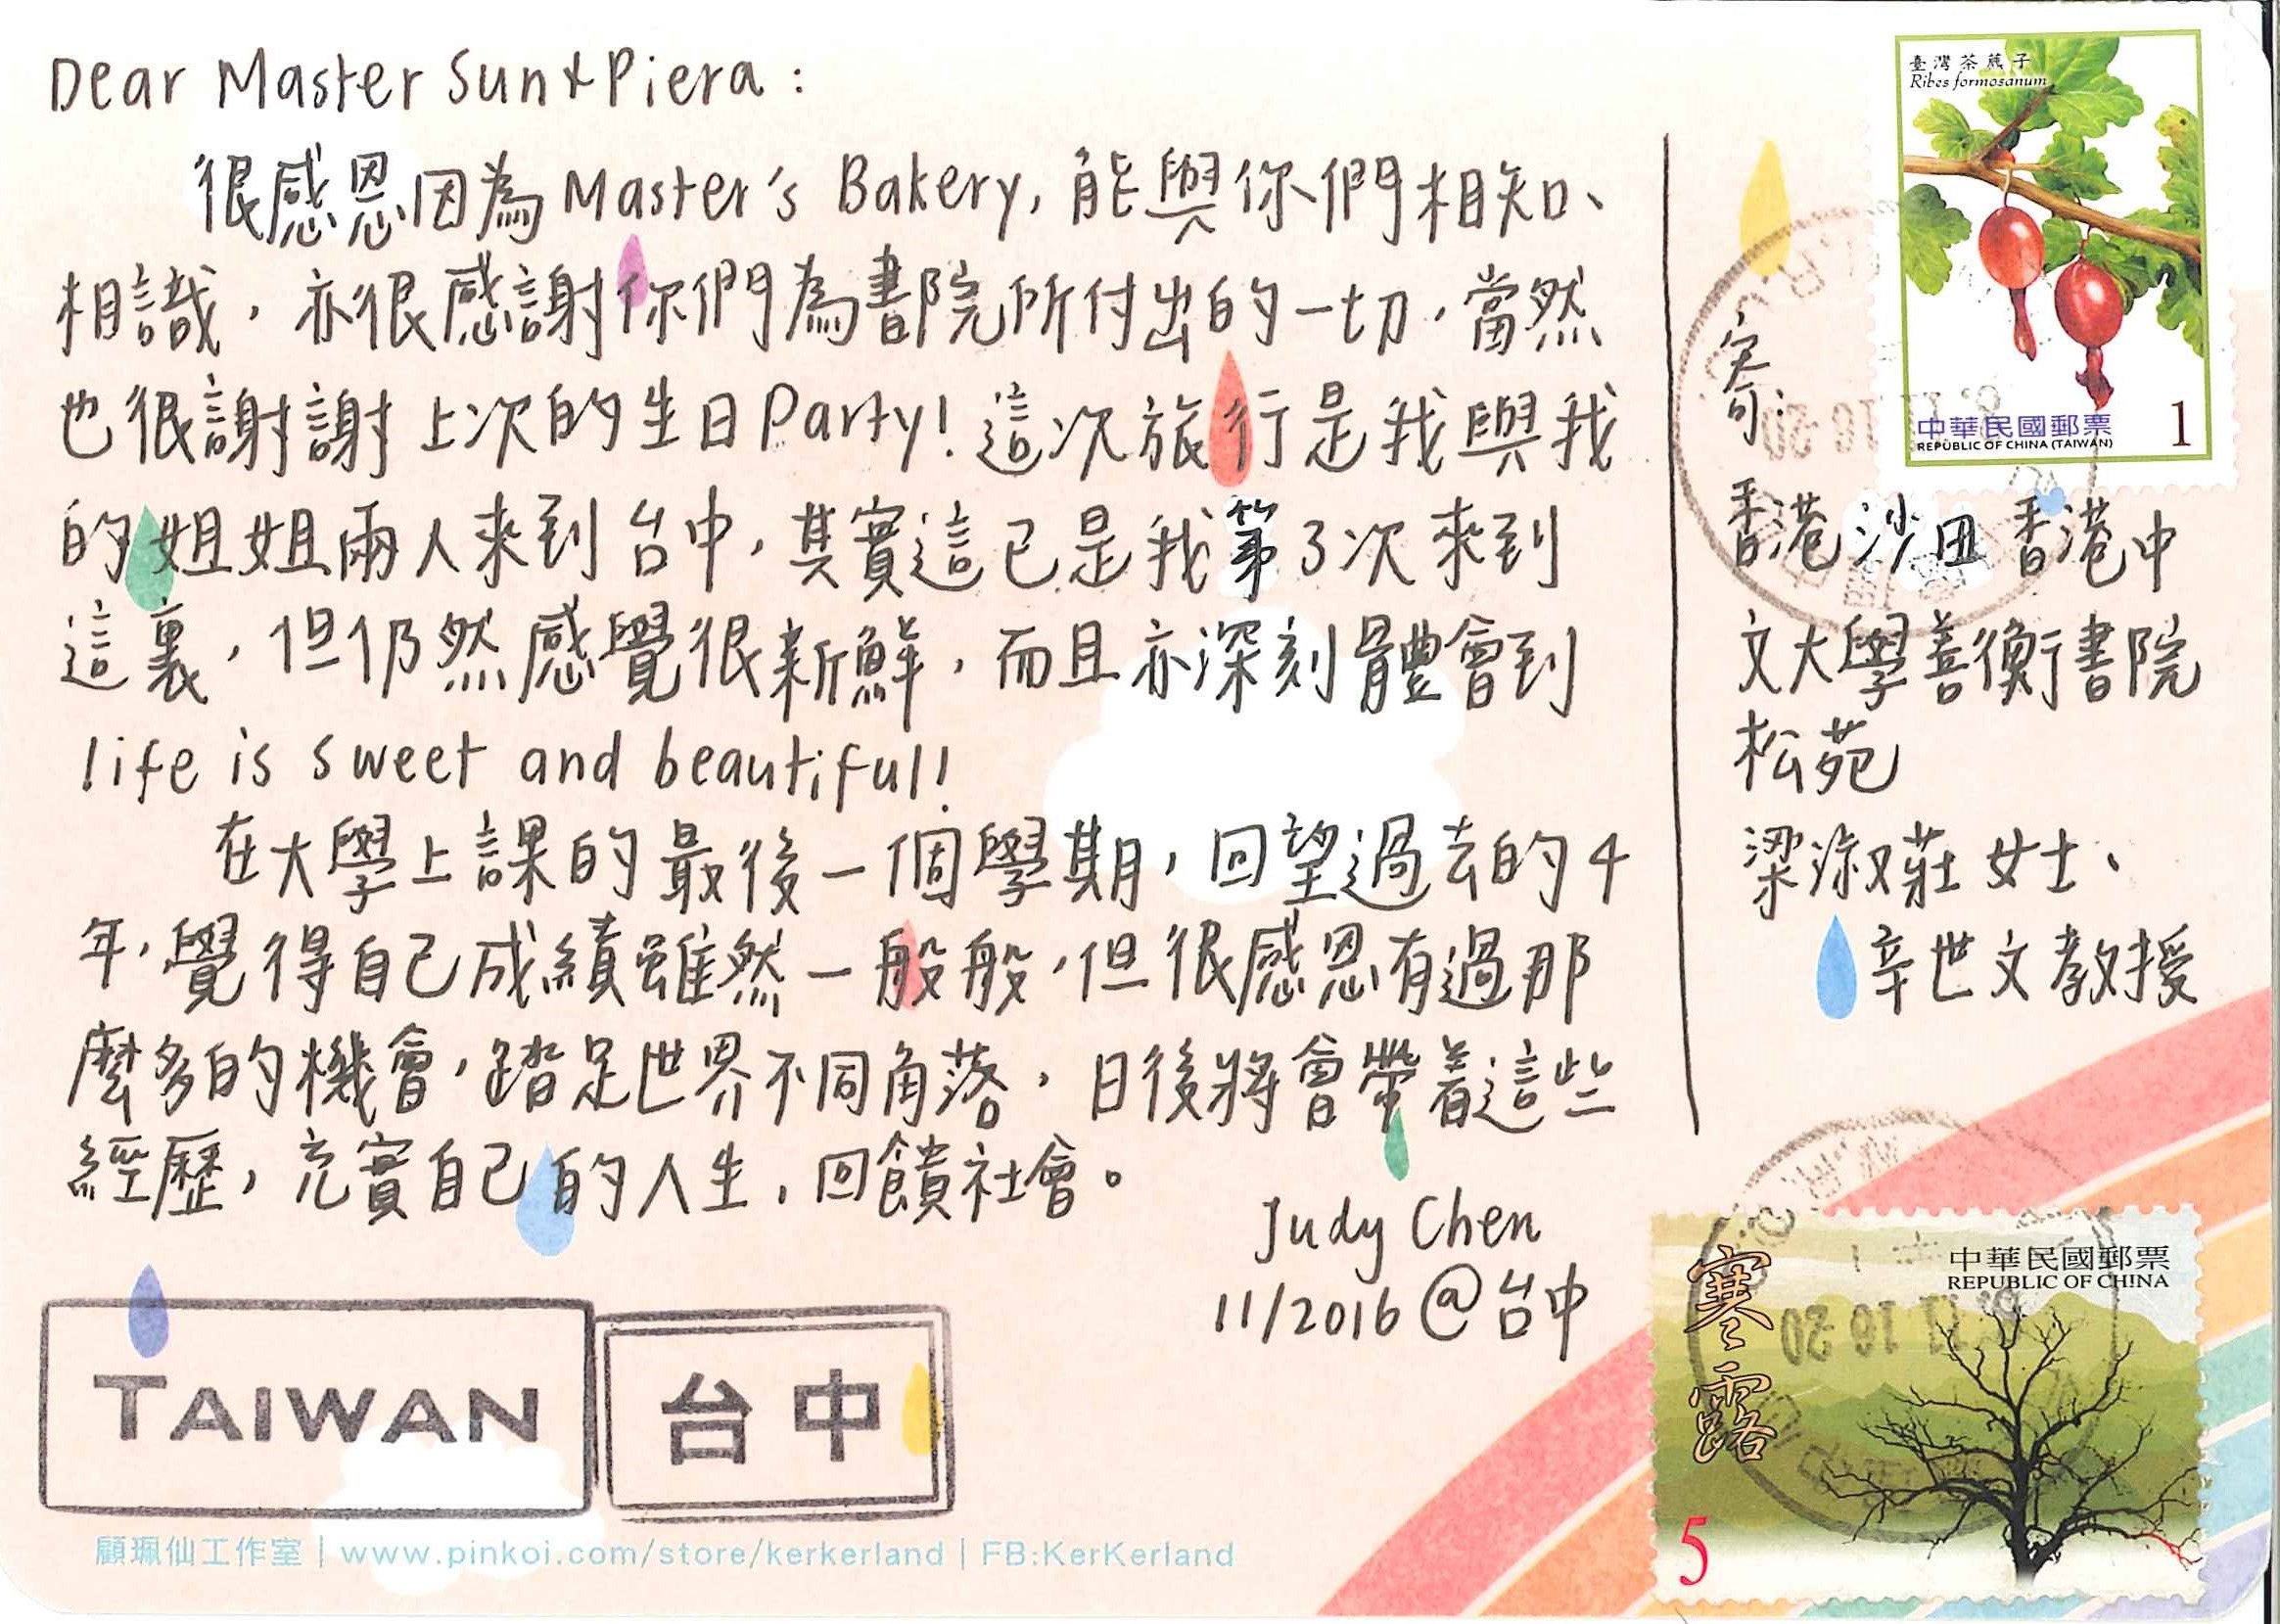 Dear Master Sun & Piera :
很感恩因為Master's Bakery, 能與你們相知、
相識，亦很感謝你們為書院所付出的一切，當然
也很謝謝上次的生日Party! 這次旅行是我與我
的姐姐兩人來到台中，其實這已是我第3次來到
這裏，但仍然感覺很新鮮，而且亦深刻體會到
life is sweet and beautiful!
在大學上課的最後一個學期，回望過去的4
年，覺得自己成績雖然一般般，但很感恩有過那
麼多的機會，踏足世界不同角落，日後將會帶着這些
經歷，充實自己的人生，回饋社會。
Judy Chen
11/2016 @台中
TAIWAN
台中
顧珮仙工作室 | www.pinkoi.com/store/kerkerland | FB:KerKerland
臺灣茶藨子
Ribes formosanum
中華民國郵票
REPUBLIC OF CHINA (TAIWAN)
1
寄:
香港沙田香港中
文大學善衡書院
松苑
梁淑莊女士、
辛世文教授
中華民國郵票
REPUBLIC OF CHINA
寒露
5